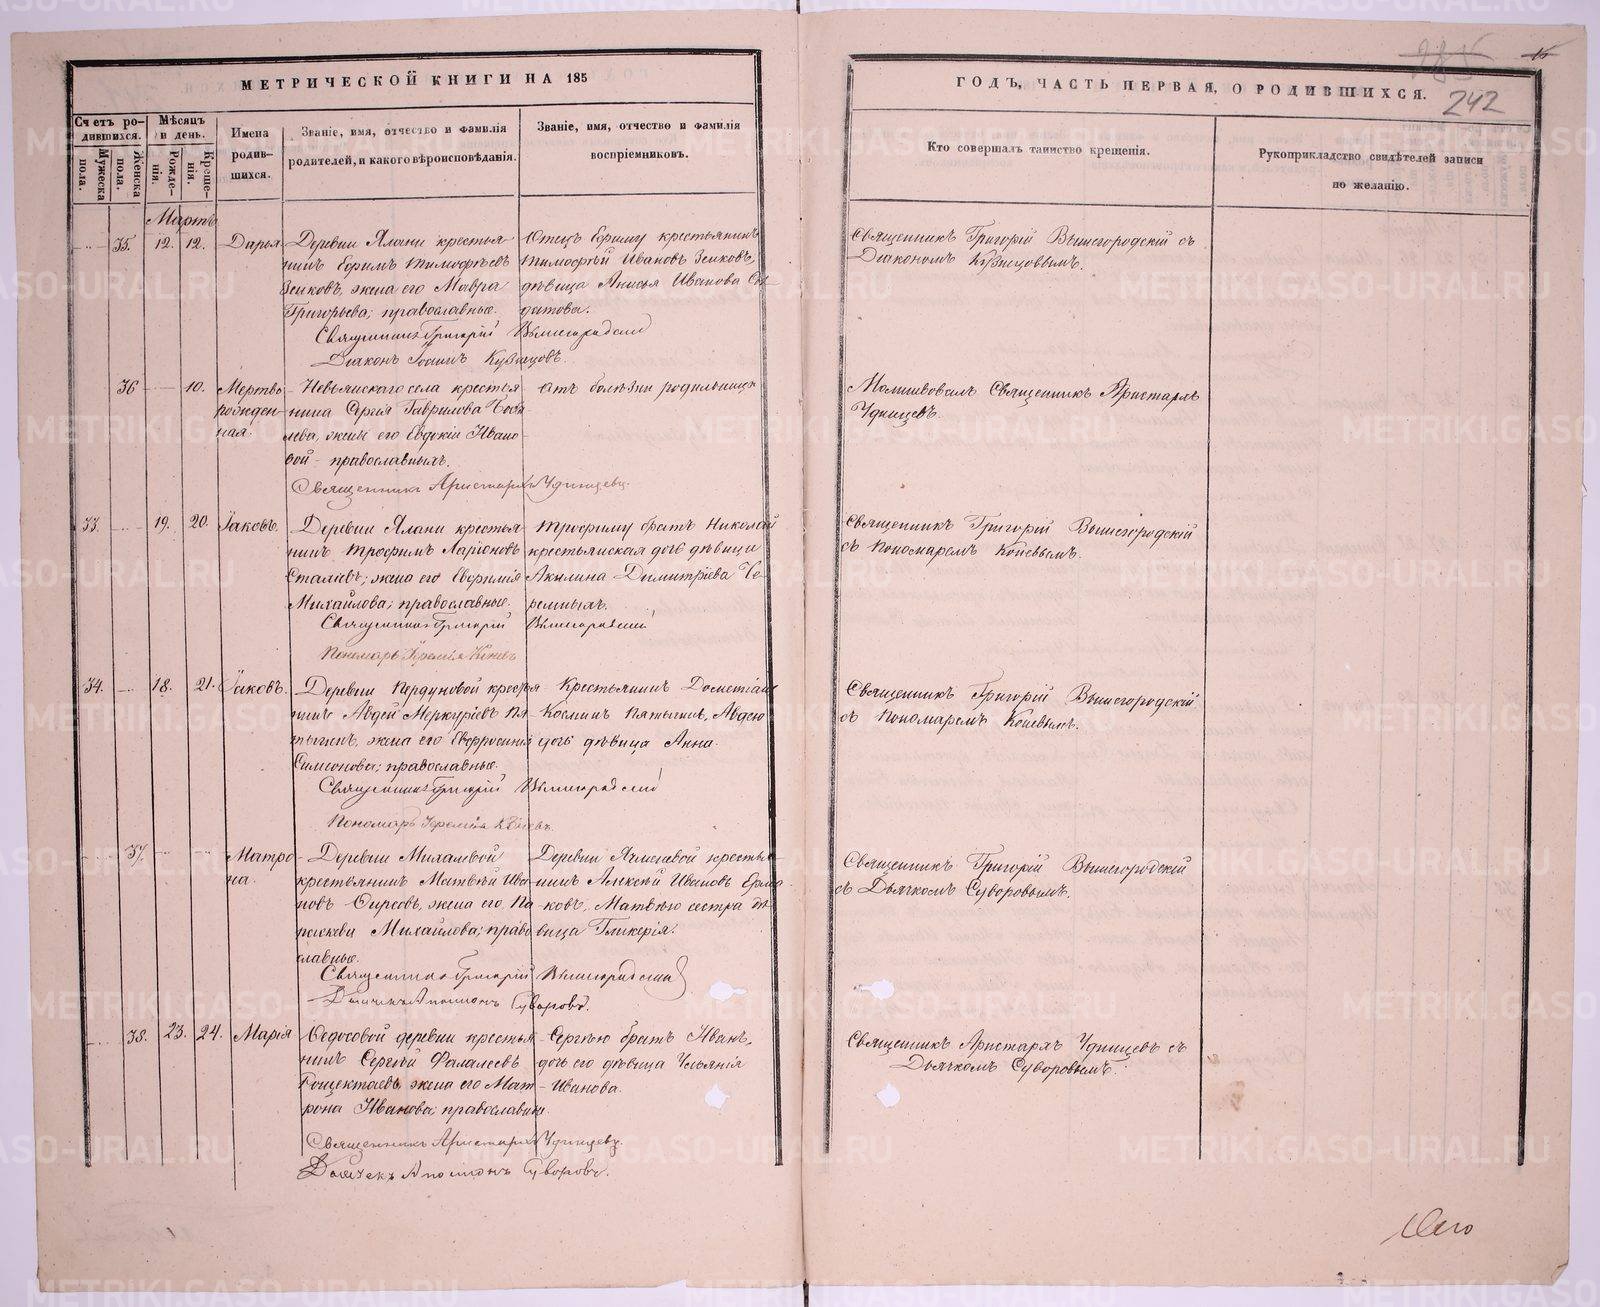 МЕТРИЧЕСКОЙ КНИГИ НА 185
Счетъ родившихся.
Мужеска пола.
Женска пола.
Мѣсяцъ и день.
Рожденія.
Крещенія.
Имена родившихся.
Званіе, имя, отчество и фамилія родителей, и какого вѣроисповѣданія.
Званіе, имя, отчество и фамилія воспріемниковъ.
ГОДЪ, ЧАСТЬ ПЕРВАЯ, О РОДИВШИХСЯ.
242
Кто совершалъ таинство крещенія.
Рукоприкладство свидѣтелей записи по желанію.
Мартъ
35. 12. 12. Дарья
Деревни Ялани крестья-
нинъ Ефимъ Тимофѣевъ
Зенковъ, жена его Мавра
Григорьева; православные.
Отецъ Ефиму крестьянинъ
Тимофѣй Ивановъ Зенковъ,
дѣвица Анисья Иванова
Священникъ Григорій Вышегородскій
Діаконъ Іоаннъ Кузнецовъ.
Священникъ Григорій Вышегородскій съ
Діакономъ Кузнецовымъ.
36 10. Мертво-
рожден-
ная.
Невьянскаго села крестья-
нина Сергія Гаврилова
жены его Евдокіи Ивано-
вой - православныхъ.
отъ болѣзни родильницы
Священникъ Аристархъ Удинцевъ.
Молитвовалъ Священникъ Аристархъ
Удинцевъ.
33. 19. 20. Іаковъ.
Деревни Ялани крестья-
нинъ Трофимъ Ларіоновъ
жена его Евфимія
Михайлова; православные.
Трофиму братъ Николай
крестьянская дочь дѣвица
Акилина Димитріева Че-
ремныхъ.
Священникъ Григорій Вышегородскій
Пономарь Іеремія Коневъ
Священникъ Григорій Вышегородскій
съ Пономаремъ Коневымъ.
34. 18. 21. Іаковъ.
Деревни Пердуновой крестья-
нинъ Авдей Меркурьевъ Пя-
тыгинъ, жена его Евфросинія
Симеонова; православные.
Крестьянинъ Дометіанъ
Косминъ Пятыгинъ, Авдею
дочь дѣвица Анна.
Священникъ Григорій Вышегородскій
Пономарь Іеремія Коневъ.
Священникъ Григорій Вышегородскій
съ Пономаремъ Коневымъ.
37. Матро-
на.
Деревни
крестьянинъ Матвѣй Ива-
новъ Фирсовъ, жена его Па-
раскева Михайлова; право-
славные.
Деревни Ячменевой крестья-
нинъ Алексѣй Ивановъ Ерма-
ковъ, Матвѣю сестра дѣ-
вица Гликерія.
Священникъ Григорій Вышегородскій
Дьячекъ Аполлонъ Суворовъ.
Священникъ Григорій Вышегородскій
съ Дьячкомъ Суворовымъ.
38. 23. 24. Марія
Федосовой деревни крестья-
нинъ Сергѣй Фалалеевъ
жена его Мат-
рона Иванова; православные.
Сергѣю братъ Иванъ,
дочь его дѣвица Ульянія
Иванова.
Священникъ Аристархъ Удинцевъ.
Дьячекъ Аполлонъ Суворовъ.
Священникъ Аристархъ Удинцевъ съ
Дьячкомъ Суворовымъ.
METRIKI.GASO-URAL.RU